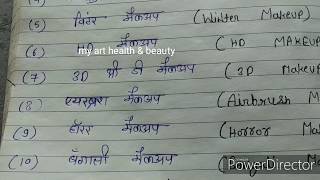 (5) विंटर मैकअप (Winter Makeup)
(6) मैकअप (HD MAKEUP
my art health & beauty
(7) 3D थ्री डी मैकअप (3D Makeup
(8) एयरब्रश मैकअप (Airbrush M
(9) हॉरर मैकअप (Horror Ma
(10) बंगाली मैकअप
PowerDirector